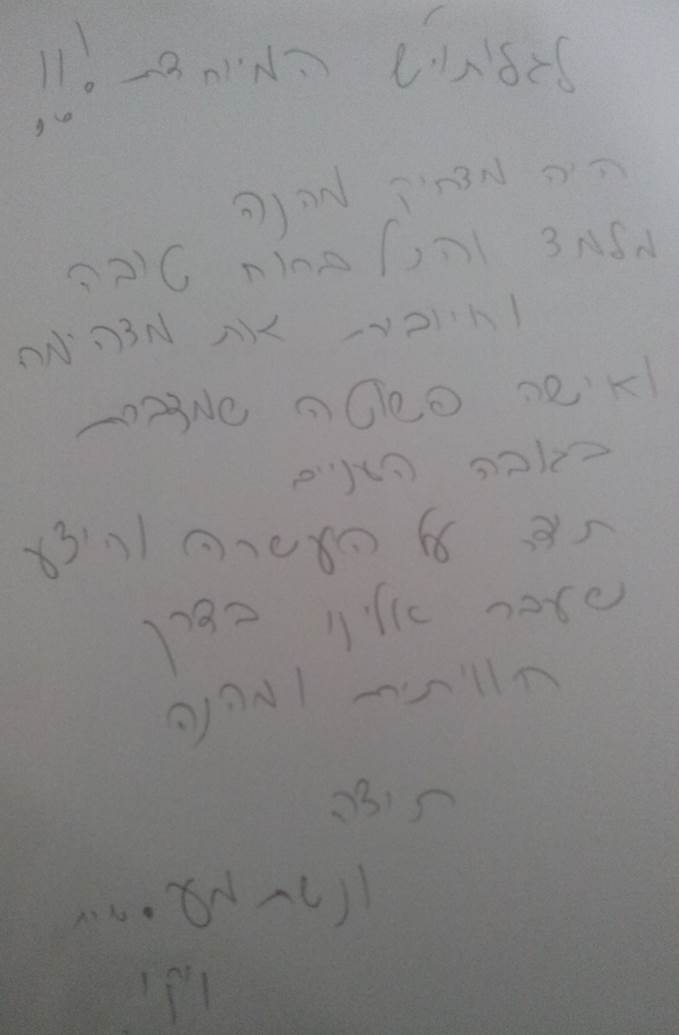 לגליתוש המיוחדת !!!
היה מצחיק מהנה
מלמד והכל ברוח טובה
וחיובית את מדהימה
ואישה פשוטה שמדברת
בגובה העניים
תדה על העשרה והידע
שעבר אלינו בדרך
חוויתית ומהנה
תודה
ונשת
ויקי